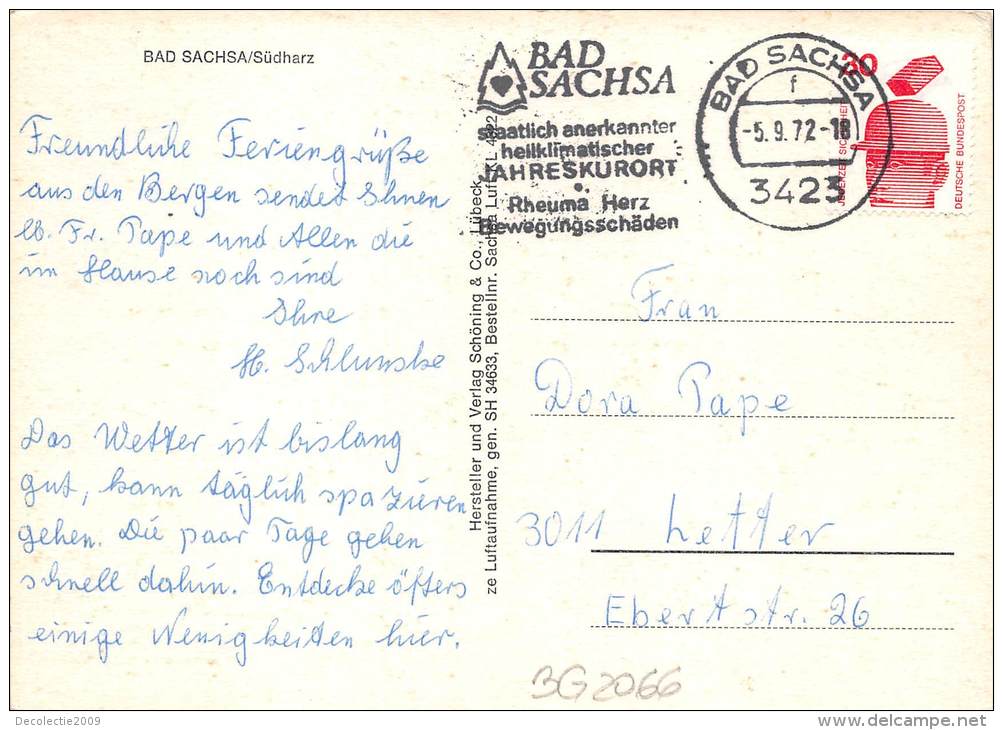 BAD SACHSA/Südharz
Freundliche Feriengrüße
aus den Bergen sendet Ihnen
lb. Fr. Pape und Allen die
im Hause noch sind
Ihre
H. Schlunske
Das Wetter ist bislang
gut, kann täglich spazieren
gehen. Die paar Tage gehen
schnell dahin. Entdecke öfters
einige Neuigkeiten hier.
Hersteller und Verlag Schöning & Co., Lübeck
ze Luftaufnahme, gen. SH 34633, Bestellnr. Sachsa Luft KL
BAD
SACHSA
staatlich anerkannter
heilklimatischer
JAHRESKURORT
Rheuma Herz
Bewegungsschäden
BAD SACHSA
f
-5.9.72-18
3423
JEDERZEIT SICHERHEIT
DEUTSCHE BUNDESPOST
Frau
Dora Pape
3011 Letter
Ebertstr. 26
BG2066
Decolectie2009
delcampe.net